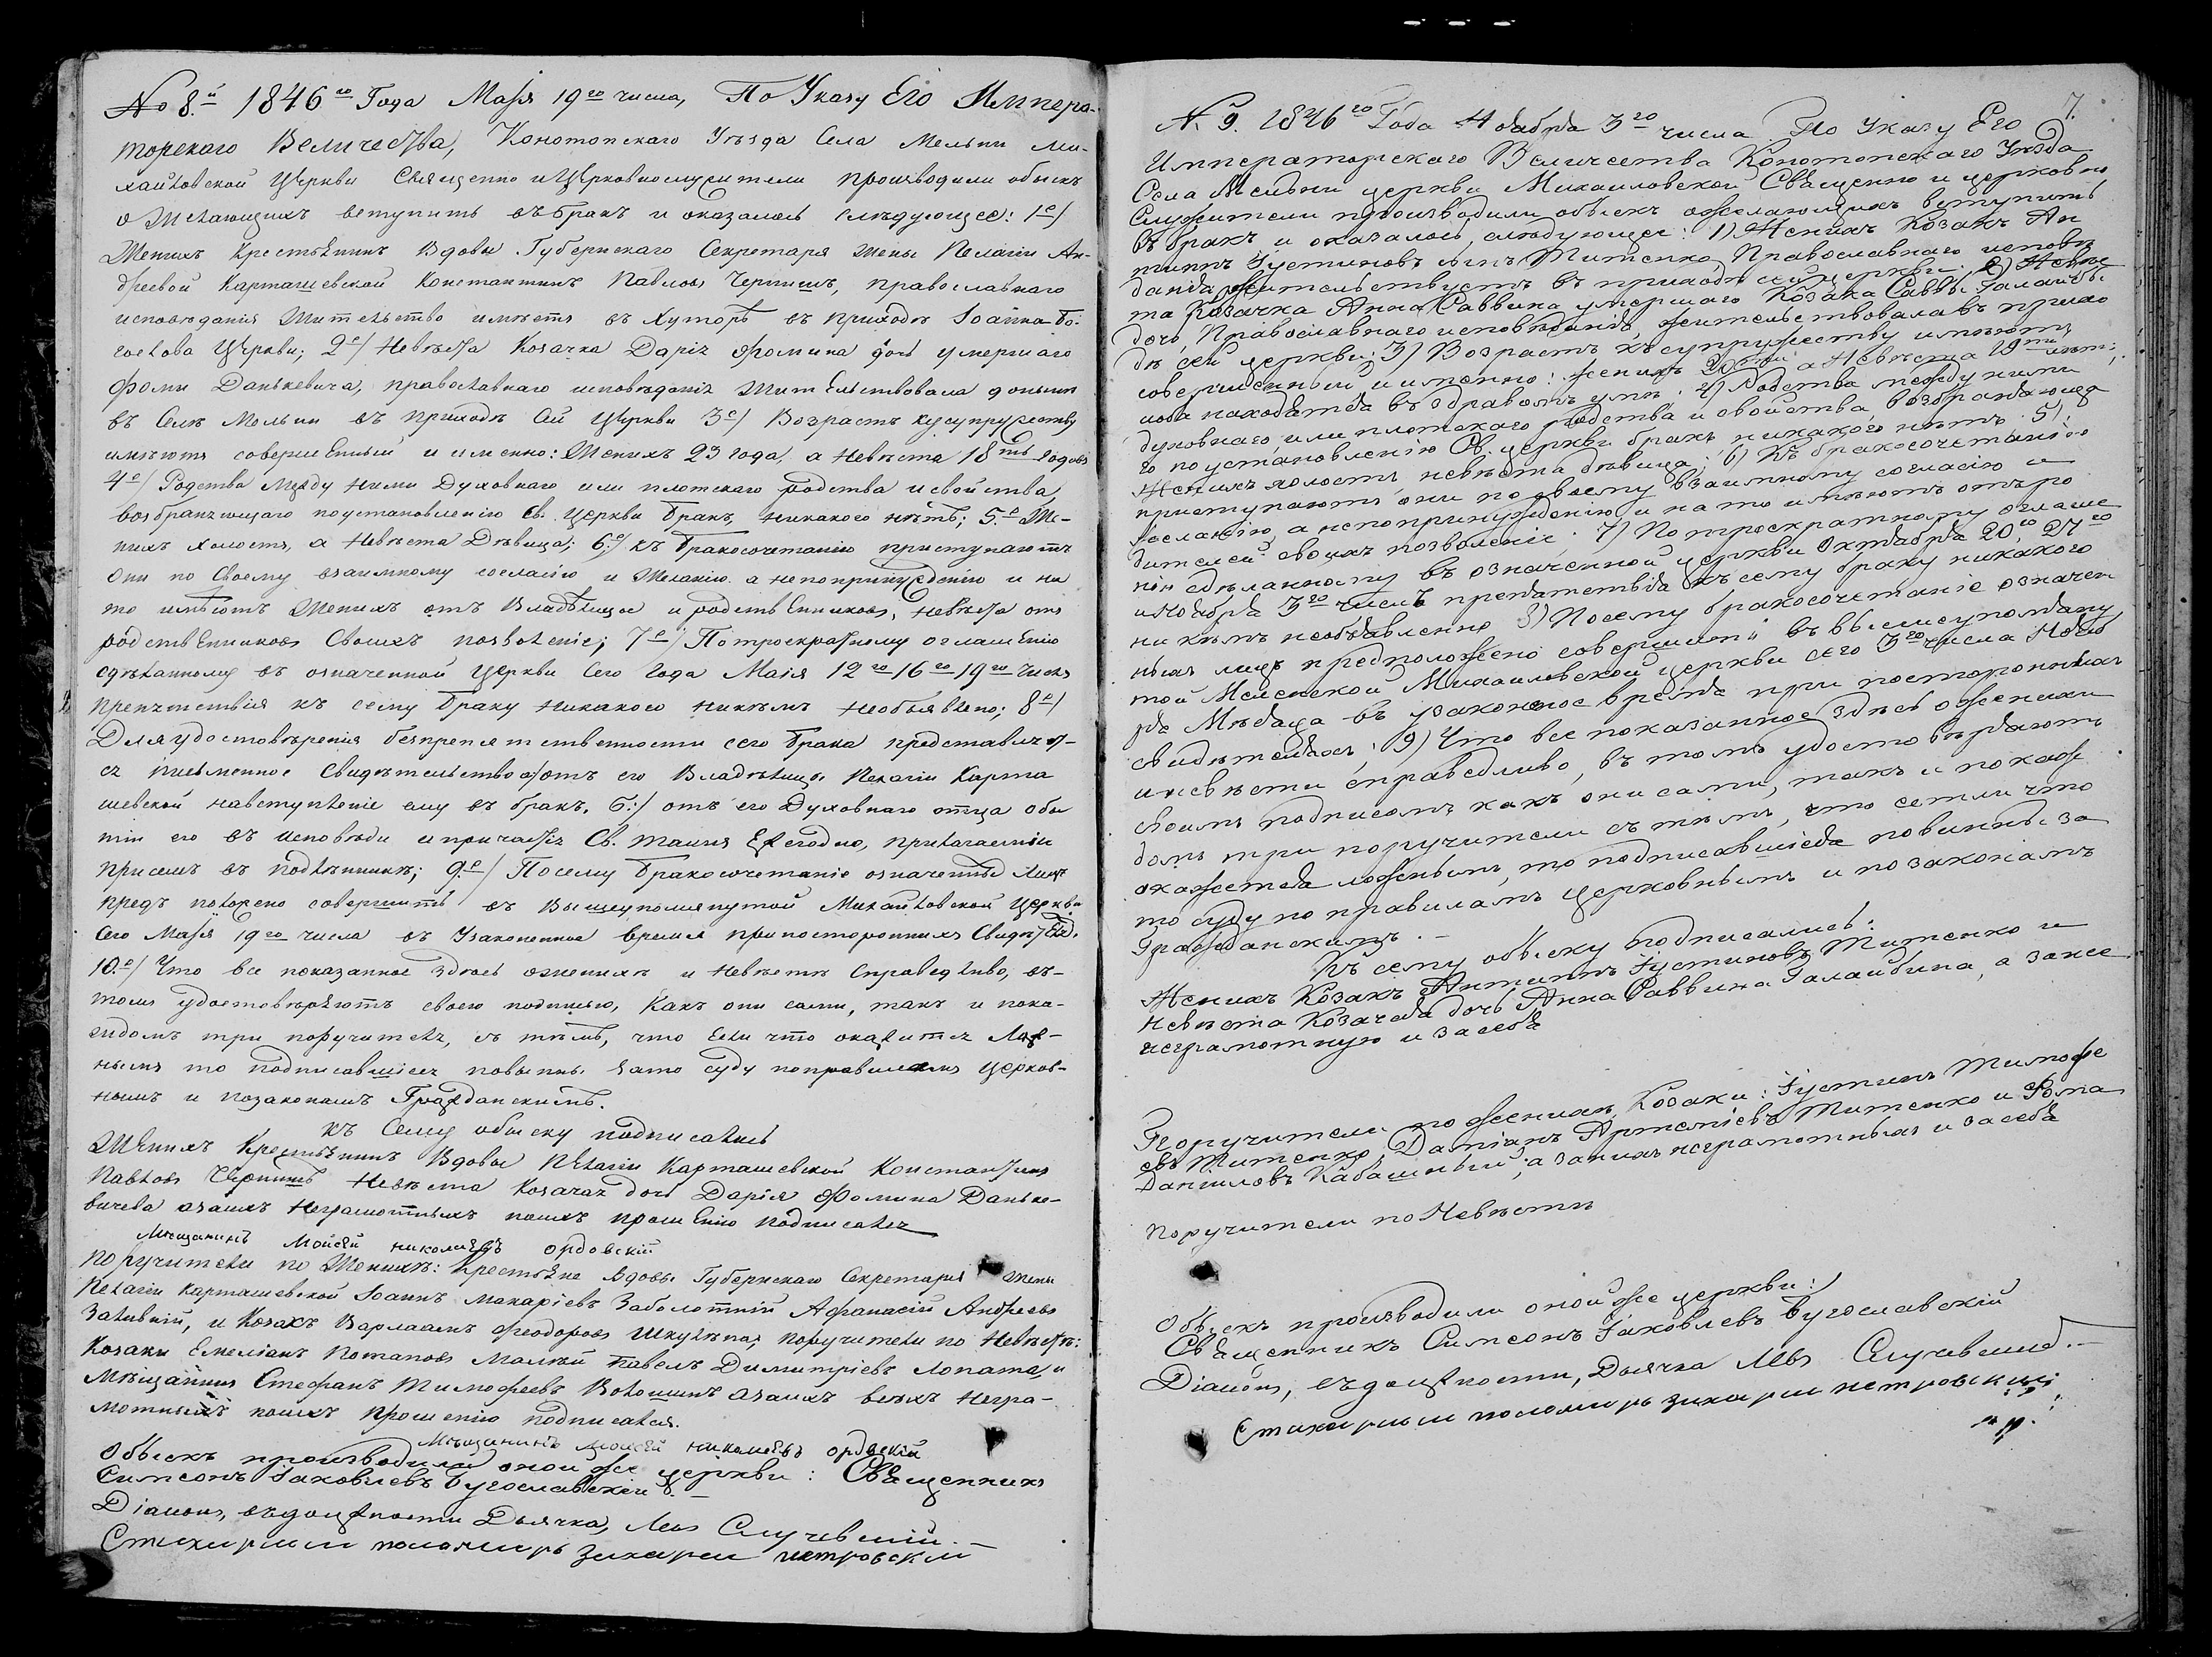 No 8.й 1846го Года Маія 19го числа, По Указу Его Импера-
торскаго Величества, Конотопскаго Уѣзда Села Мельни Ми-
хайловской Церкви Священно и Церковнослужители производили обыскъ
о Желающихъ вступить въ бракъ и оказалось слѣдующее: 1е/
Женихъ Крестьянинъ Вдовы Губернскаго Секретаря жены Пелагіи Ан-
дреевой Карташевской Константинъ Павловъ Черпишъ, православнаго
исповѣданія Жительство имѣетъ въ Хуторѣ въ приходѣ Іоанна Бо-
гослова Церкви; 2е/ Невѣста Козачка Дарія Фомина дочь умершаго
Фомы Данькевича, православнаго исповѣданія Жительствовала донынѣ
въ Селѣ Мельни въ приходѣ сей Церкви 3е/ Возрастъ къ супружеству
имѣютъ совершенный и именно: Женихъ 23 года, а Невѣста 18ть годовъ
4е/ Родства Между ними Духовнаго или плотскаго родства и свойства,
возбраняющаго поустановленію Св. Церкви бракъ, никакого нѣтъ; 5.е Же-
нихъ холостъ, а Невѣста Дѣвица; 6.е/ къ бракосочетанію приступаютъ
Они по Своему взаимному согласію и Желанію а непопринужденію и на
то имѣютъ Женихъ отъ Владѣлицы и родственниковъ, Невѣста отъ
родственниковъ Своихъ позволеніе; 7е/ По троекратному оглашенію
сдѣланному въ означенной Церкви Сего Года Маія 12го 16го 19го Числъ
препятствія къ сему браку никакого никѣмъ необъявлено; 8е/
Для удостовѣренія безпрепятственности сего брака представляет-
ся письменное Свидѣтельство а/ отъ его Владѣлицы Пелагіи Карта
шевской навступленіе ему въ бракъ, б:/ отъ его Духовнаго отца о бы
тіи его въ исповѣди и причастіи Св. таинъ Ежегодно, прилагаеміи
присемъ въ подлинникѣ; 9.е/ Посему бракосочетаніе означенныхъ лицъ
предъ положено совершить въ Вышеупомянутой Михайловской Церкви
Сего Маія 19го числа въ Узаконенное время при постороннихъ Свидѣтел.
10.е/ Что все показанное здѣсь оженихѣ и Невѣстѣ Справедливо, въ-
томъ удостовѣряютъ своею подписью, Какъ они сами, такъ и пока-
ждомъ три поручителя, съ тѣмъ, что Если что окажется Лож-
нымъ то подписавшіеся повинны зато суду поправиламъ Церков-
нымъ и позаконамъ Гражданскимъ.
къ Сему обыску подписались
Женихъ Крестьянинъ Вдовы Пелагіи Карташевской Константинъ
Павловъ Черпишъ Невѣста Козачая дочь Дарія Фомина Данько-
вичева азаихъ Неграмотныхъ поихъ прошенію подписался
Мѣщанинъ Мойсей николаевъ ордовскій
Поручители по Женихѣ: Крестьяне Вдовы Губернскаго Секретаря жены
Пелагіи Карташевской Іоаннъ Макаріевъ Заболотній Афанасій Андреевъ
Заливній, и Козакъ Варлаамъ Феодоровъ Шкулѣпа, поручители по Невѣстѣ:
Козаки Емеліанъ Потаповъ Малый Павелъ Димитріевъ Лопата, и
Мѣщанинъ Стефанъ Тимофеевъ Волошинъ азаихъ всѣхъ Негра-
мотныхъ поихъ прошенію подписался.
Мѣщанинъ мойсей николаевъ ордовскій
Обыскъ производили оной же церкви: Священникъ
Симеонъ Іаковлевъ Бугославскій.
Діаконъ, въдолжности Дьячка, Левъ Случевскій.
Стихарный пономарь Захарій петровскій
7.
№ 9. 1846го Года Ноября 3го числа По Указу Его
Императорскаго Величества Конотопскаго Уѣзда
Села Мельни церкви Михаиловской Священно и церковно
Служители производили обыскъ ожелающихъ вступить
въ бракъ и оказалось слѣдующее: 1) Женихъ Козакъ Ан
типъ Іустиновъ сынъ Титенко, Православнаго исповѣ
данія жительствуетъ въ приходѣ сей церкви. 2) Невѣс
та Козачка Анна Саввина умершаго Козака Саввы Галайбы
дочь, Православнаго исповѣданія, жительствовала въ прихо
дѣ сей церкви; 3) Возрастъ къ супружеству имѣютъ
совершенный и именно: женихъ а Невѣста 19ти лѣтъ;
и оба находятся въ здравомъ умѣ. 4) Родства между ними
духовнаго, или плотскаго родства и свойства, возбраняюща
го по установленію Св. церкви бракъ никакого нѣтъ. 5)
Женихъ холостъ, невѣста дѣвица; 6) Къ бракосочетанію
приступаютъ они по своему взаимному согласію и
желанію, а непопринужденію и на то имѣютъ отъ ро
дителей своихъ позволеніе. 7) По троекратному оглаше
нію сдѣланному въ означенной церкви Октября 20го, 27го
и Ноября 3го числъ препятствія къ сему браку никакого
ни кѣмъ необъявленно 8) Посему бракосочетаніе означен
ныхъ лицъ предположено совершить въ вышеупомяну
той Мельнской Михаиловской церкви сего 3го числа Нояб
ря Мѣсяца въ узаконеное время при постороннихъ
свидѣтеляхъ; 9) Что все показанное здѣсь о женихѣ
и невѣстѣ справедливо, въ томъ удостовѣряютъ
своимъ подписомъ какъ они сами, такъ и по каж
домъ три поручители съ тѣмъ, что естли что
окажется ложнымъ, то подписавшіеся повинны за
то суду по правиламъ церковнымъ и по законамъ
Гражданскимъ.-
Къ сему обыску подписались:
Женихъ Козакъ Антипъ Іустиновъ Титенко и
Невѣста Козачая дочь Анна Саввина Галайбина, а за нее
неграмотную и за себя
Поручители по женихѣ, Козаки: Іустинъ Тимофе
евъ Титенко, Даміанъ Артеміевъ Титенко и Рома
Даниловъ Кабашный; а за нихъ неграмотныхъ и за себя
Поручители по Невѣстѣ
Обыскъ производили оной же церкви:
Священникъ Симеонъ Іаковлевъ Бугославскій
Діаконъ, въдолжности, Дьячка Левъ Случевскій.-
Стихарный пономарь Захарій петровскій